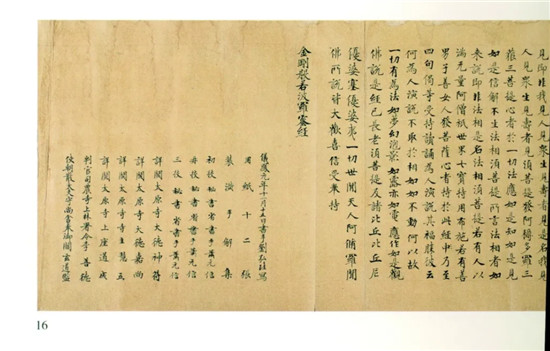 見即非我見人見眾生見壽者見是名我見
人見眾生見壽者見須菩提發阿耨多羅三
藐三菩提心者於一切法應如是知如是見
如是信解不生法相須菩提所言法相者如
來說即非法相是名法相須菩提若有人以
滿无量阿僧祇世界七寶持用布施若有善
男子善女人發菩薩心者持於此經中乃至
四句偈等受持讀誦為人演說其福勝彼云
何為人演說不取於相如如不動何以故
一切有為法如夢幻泡影如露亦如電應作如是觀
佛說是經已長老須菩提及諸比丘比丘尼
優婆塞優婆夷一切世間天人阿脩羅聞
佛所說皆大歡喜信受奉持
金剛般若波羅蜜經
儀鳳元年十一月十五日書手劉弘珪寫
用紙十二張
裝潢手解集
初校秘書省書手蕭元信
再校秘書省書手蕭元信
三校秘書省書手蕭元信
詳閱太原寺大德神符
詳閱太原寺大德嘉尚
詳閱太原寺寺主慧立
詳閱太原寺上座道成
判官司農寺上林署令李善德
使朝散大夫守尚舍奉御閻玄道監
16